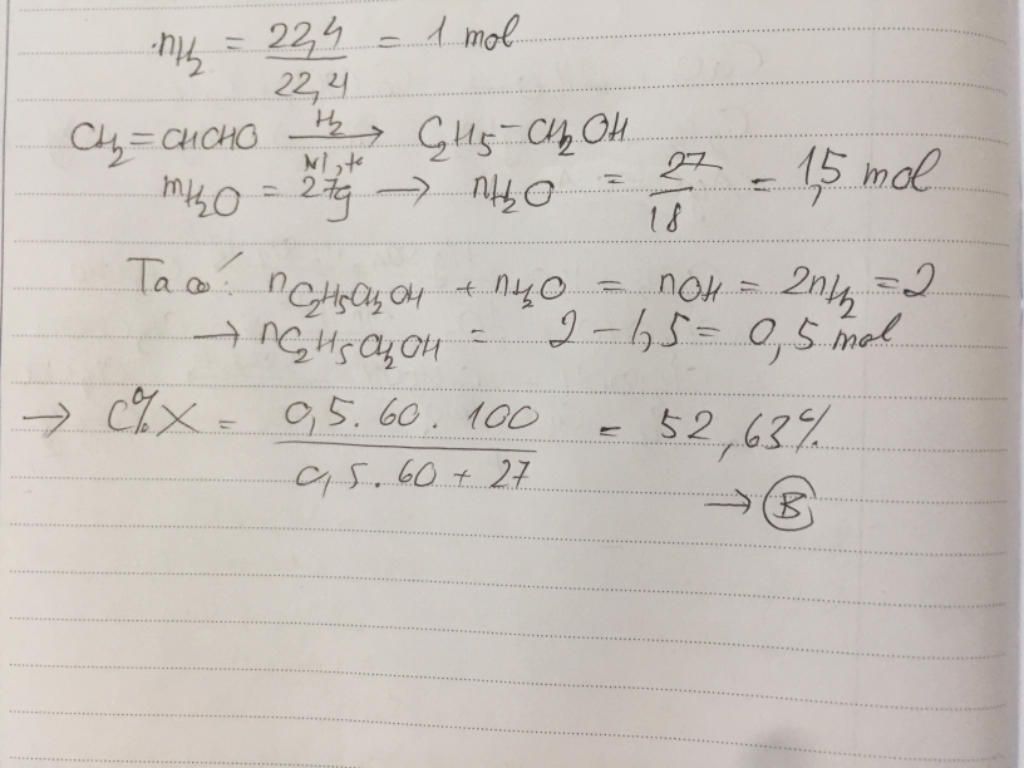 nH₂ = 22,4 / 22,4 = 1 mol
CH₂=CHCHO —H₂→ Ni, t° C₂H₅-CH₂OH
mH₂O = 27g → nH₂O = 27 / 18 = 1,5 mol
Ta có: nC₂H₅CH₂OH + nH₂O = nOH = 2nH₂ = 2
→ nC₂H₅CH₂OH = 2 - 1,5 = 0,5 mol
→ C%X = 0,5.60.100 / 0,5.60 + 27 = 52,63%
→ B